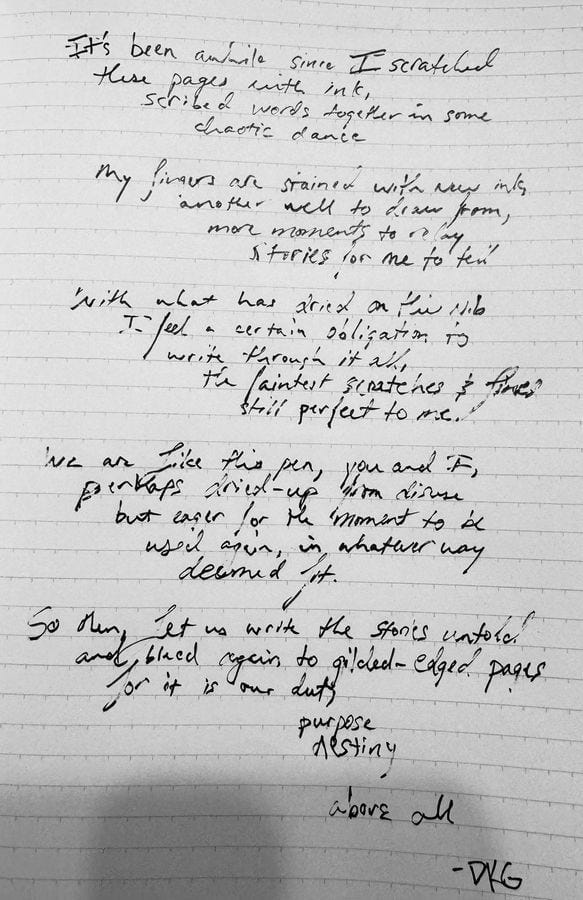 It's been awhile since I scratched
these pages with ink,
scribed words together in some
chaotic dance
My fingers are stained with new ink,
another well to draw from,
more moments to relay
stories for me to tell
With what has dried on this nib
I feel a certain obligation to
write through it all,
the faintest scratches & lines
still perfect to me.
We are like this pen, you and I,
perhaps dried-up from disuse
but eager for the moment to be
used again, in whatever way
deemed fit.
So then, let us write the stories untold
and bleed again to gilded-edged pages
for it is our duty
purpose
destiny
above all
-DKG